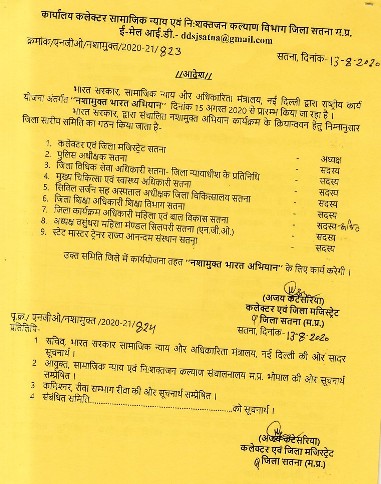 कार्यालय कलेक्टर सामाजिक न्याय एवं नि:शक्तजन कल्याण विभाग जिला सतना म.प्र.
ई-मेल आई.डी.- ddsjsatna@gmail.com
क्रमांक/एनजीओ/नशामुक्त/2020-21/823
सतना, दिनांक-13-8-2020
//आदेश//
भारत सरकार, सामाजिक न्याय और अधिकारिता मंत्रालय, नई दिल्ली द्वारा राष्ट्रीय कार्य
योजना अंतर्गत "नशामुक्त भारत अभियान" दिनांक 15 अगस्त 2020 से प्रारम्भ किया जा रहा है।
भारत सरकार, द्वारा संचालित नशामुक्त अभियान कार्यक्रम के क्रियान्वयन हेतु निम्नानुसार
जिला स्तरीय समिति का गठन किया जाता है-
1. कलेक्टर एवं जिला मजिस्ट्रेट सतना - अध्यक्ष
2. पुलिस अधीक्षक सतना - सदस्य
3. जिला विधिक सेवा अधिकारी सतना- जिला न्यायाधीश के प्रतिनिधि - सदस्य
4. मुख्य चिकित्सा एवं स्वास्थ्य अधिकारी सतना - सदस्य
5. सिविल सर्जन सह अस्पताल अधीक्षक जिला चिकित्सालय सतना - सदस्य
6. जिला शिक्षा अधिकारी शिक्षा विभाग सतना - सदस्य
7. जिला कार्यक्रम अधिकारी महिला एवं बाल विकास सतना - सदस्य
8. अध्यक्ष वसुंधरा महिला मंण्डल सितपरी सतना (एन.जी.ओ.) - सदस्य
9. स्टेट मास्टर ट्रेनर राज्य आनन्दम संस्थान सतना - सदस्य
उक्त समिति जिले में कार्ययोजना तहत "नशामुक्त भारत अभियान" के लिए कार्य करेगी।
(अजय कटेसरिया)
कलेक्टर एवं जिला मजिस्ट्रेट
जिला सतना (म.प्र.)
पृ.क्र./एनजीओ/नशामुक्त/2020-21/824
सतना, दिनांक-13-8-2020
प्रतिलिपि-
1 सचिव, भारत सरकार सामाजिक न्याय और अधिकारिता मंत्रालय, नई दिल्ली की ओर सादर
सूचनार्थ।
2 आयुक्त, सामाजिक न्याय एवं नि:शक्तजन कल्याण संचालनालय म.प्र. भोपाल की ओर सूचनार्थ
सम्प्रेषित।
3 कमिश्नर, रीवा सम्भाग रीवा की ओर सूचनार्थ सम्प्रेषित।
4 संबंधित समिति....................................को सूचनार्थ।
(अजय कटेसरिया)
कलेक्टर एवं जिला मजिस्ट्रेट
जिला सतना (म.प्र.)